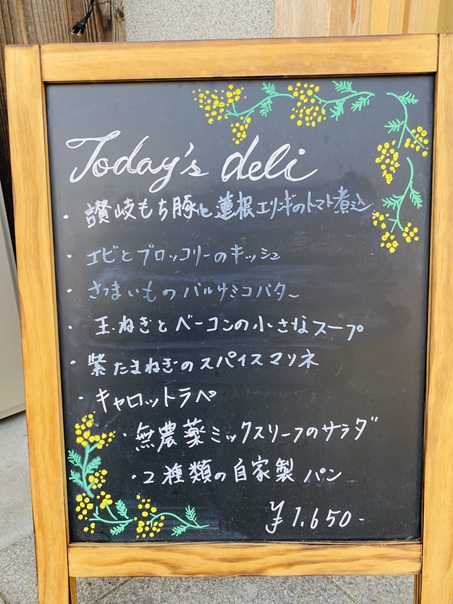 Today's deli
・讃岐もち豚と蓮根エリンギのトマト煮込
・エビとブロッコリーのキッシュ
・さつまいものバルサミコバター
・玉ねぎとベーコンの小さなスープ
・紫たまねぎのスパイスマリネ
・キャロットラペ
・無農薬ミックスリーフのサラダ
・2種類の自家製パン
¥1.650-